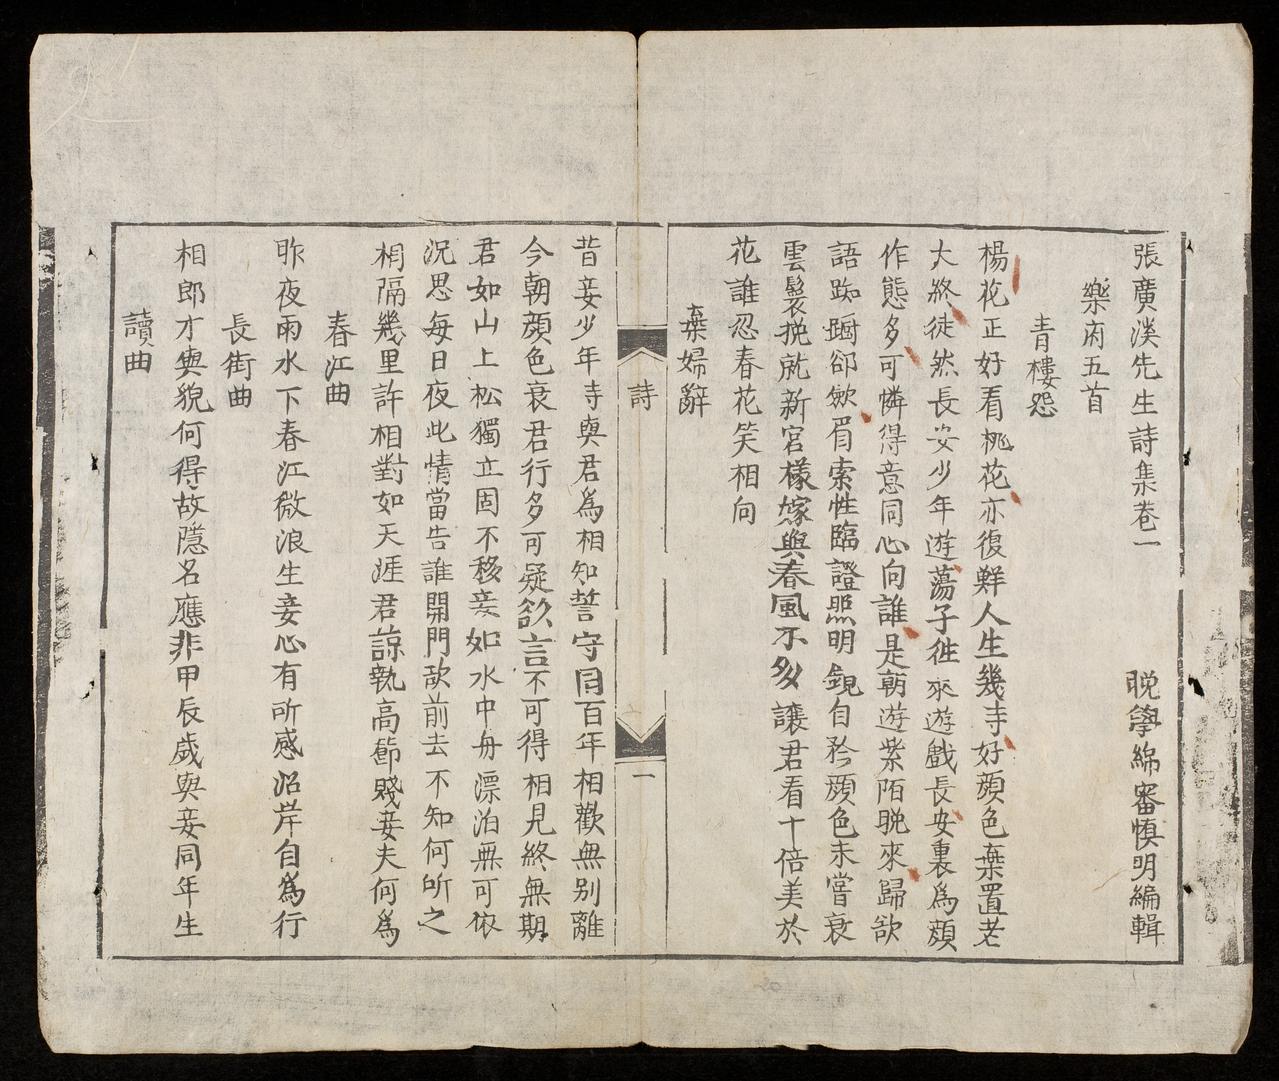 張廣溪先生詩集卷一
晩學綿審愼明編輯
樂府五首
青樓怨
楊花正好看桃花亦復鮮人生幾寺好顔色棄置老
大終徒然長安少年遊蕩子徃來遊戱長安裏爲頗
作態多可憐得意同心向誰是朝遊紫陌晩來歸欲
語踟躕卻歛眉索性臨證照明鏡自矜顔色未嘗衰
雲鬟挽就新宮樣嫁與春風不多讓君看十倍美於
花誰忍春花笑相向
棄婦辭
詩
一
昔妾少年寺與君爲相知誓守同百年相歡無别離
今朝顔色衰君行多可疑欲言不可得相見終無期
君如山上松獨立固不移妾如水中舟漂泊無可依
況思每日夜此情當告誰開門欲前去不知何所之
相隔幾里許相對如天涯君諒執高節賤妾夫何爲
春江曲
昨夜雨水下春江微浪生妾心有所感沿岸自爲行
長街曲
相郎才與貌何得故隱名應非甲辰歲與妾同年生
讀曲